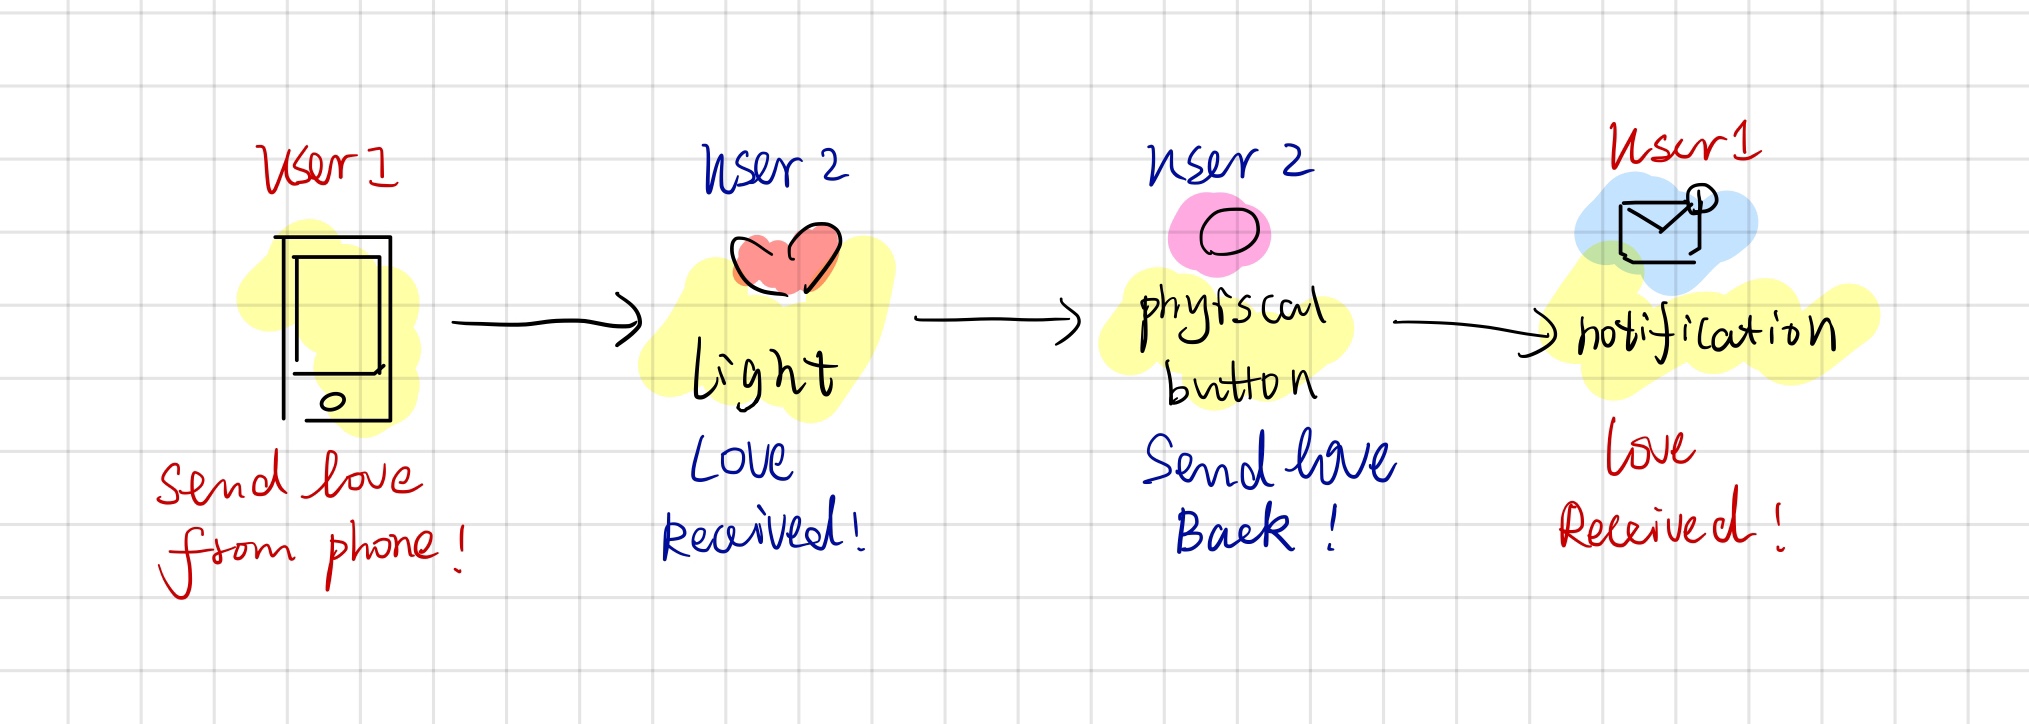 User 1
send love
from phone!
User 2
Light
Love
Received!
User 2
phyiscal
button
Send love
Back!
User 1
notification
Love
Received!